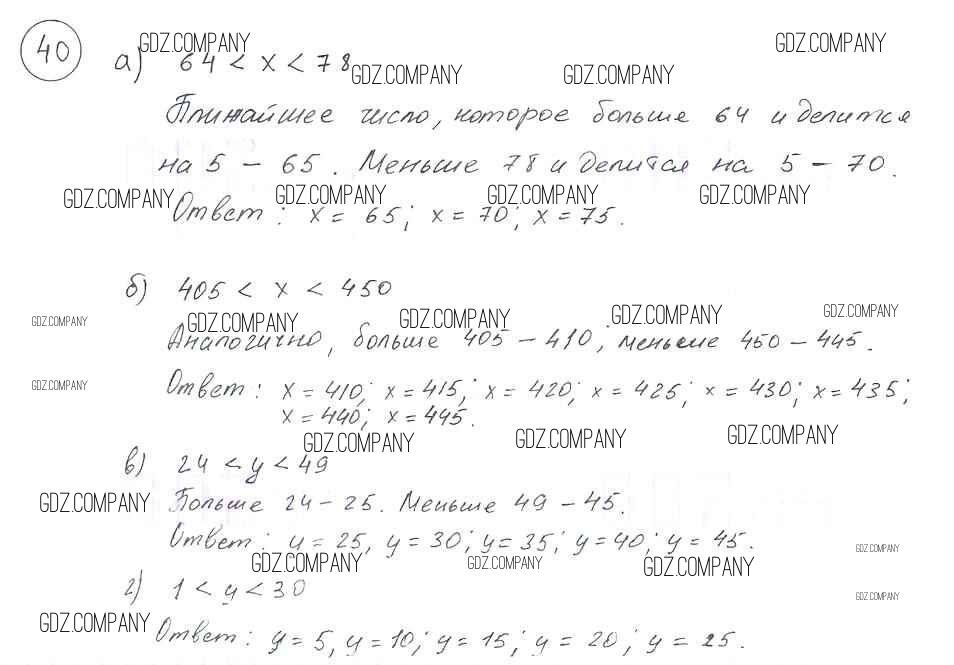 40 а) 64 < x < 78
Ближайшее число, которое больше 64 и делится
на 5 – 65. Меньше 78 и делится на 5 – 70.
Ответ: x = 65; x = 70; x = 75.
б) 405 < x < 450
Аналогично, больше 405 – 410, меньше 450 – 445.
Ответ: x = 410; x = 415; x = 420; x = 425; x = 430; x = 435;
x = 440; x = 445.
в) 24 < y < 49
Больше 24 – 25. Меньше 49 – 45.
Ответ: y = 25, y = 30; y = 35; y = 40; y = 45.
г) 1 < y < 30
Ответ: y = 5, y = 10; y = 15; y = 20; y = 25.
GDZ.COMPANY GDZ.COMPANY
GDZ.COMPANY GDZ.COMPANY
GDZ.COMPANY GDZ.COMPANY GDZ.COMPANY GDZ.COMPANY
GDZ.COMPANY GDZ.COMPANY GDZ.COMPANY GDZ.COMPANY GDZ.COMPANY
GDZ.COMPANY
GDZ.COMPANY GDZ.COMPANY GDZ.COMPANY
GDZ.COMPANY
GDZ.COMPANY GDZ.COMPANY GDZ.COMPANY GDZ.COMPANY
GDZ.COMPANY
GDZ.COMPANY